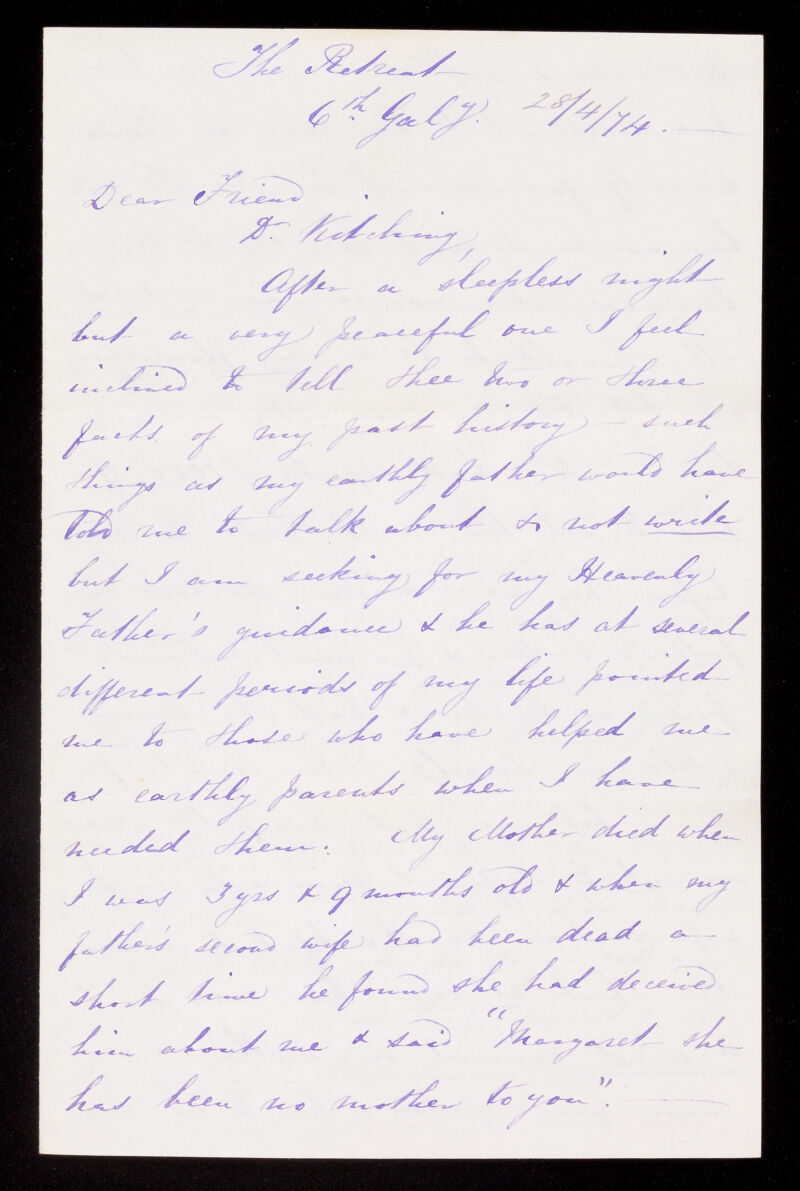 The Retreat
6th Galy. 28/4/74.
Dear Friend
Dr. Kitching,
After a sleepless night
but a very peaceful one I feel
inclined to tell thee two or three
facts of my past history – such
things as my earthly father would have
told me to talk about & not write
but I am seeking for my Heavenly
Father's guidance & he has at several
different periods of my life pointed
me to those who have helped me
as earthly parents when I have
needed them. My Mother died when
I was 3 yrs & 9 months old & when my
father's second wife had been dead a
short time he found she had deceived
him about me & said "Margaret she
has been no mother to you".